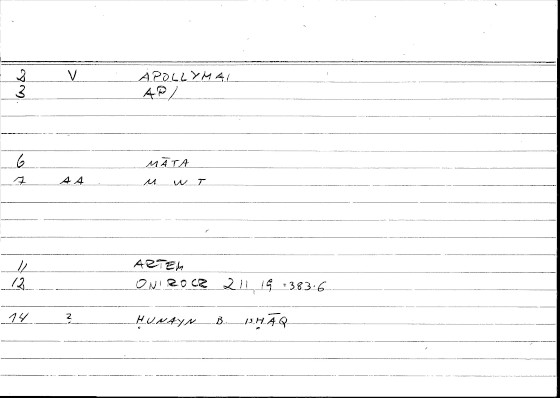 2 V APOLLYMAI
3 AP/
6 MĀTA
7 AA M W T
11 ARTEM
12 ONIROCR 211,19 = 383.6
14 ? ḤUNAYN B. ISḤĀQ